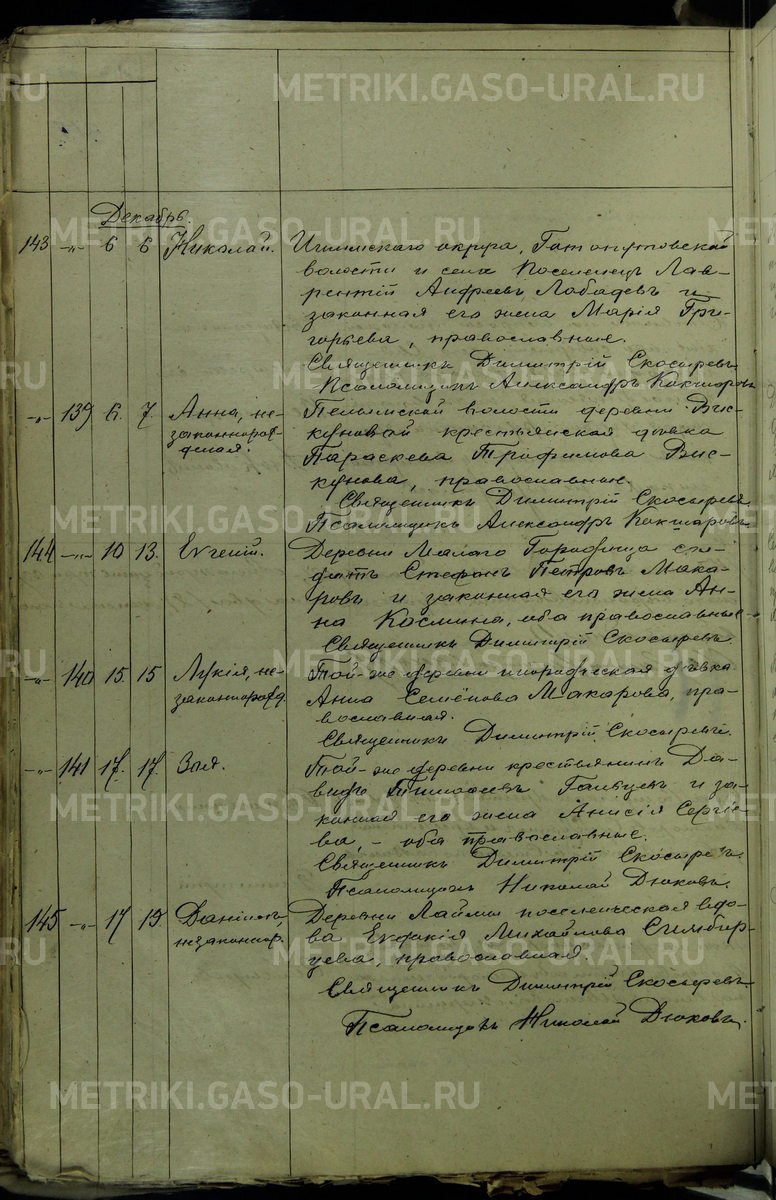 METRIKI.GASO-URAL.RU
Декабрь.
143 -„- 6 6 Николай. Ишимскаго округа, Готопутовской
волости и села поселенец Лав-
рентій Андреевъ Лобадевъ и
законная его жена Марія Гри-
горьева, православные.
Священникъ Димитрій Скосыревъ
Псаломщикъ Александръ Кокшаровъ
-„- 139 6. 7. Анна, не- Пелымской волости деревни Вис-
законнорож- куновой крестьянская дѣвка
денная. Параскева Трофимова Вис-
кунова, православные.
Священникъ Димитрій Скосыревъ
Псаломщикъ Александръ Кокшаровъ
144 -„- 10 13. Евгеній. Деревни Малаго Городища сол-
датъ Стефанъ Петровъ Мака-
ровъ и законная его жена Ан-
на Космина, оба православные.
Священникъ Димитрій Скосыревъ.
-„- 140 15. 15 Лукія, не- Той-же деревни дѣвка
законнорожд. Анна Семёнова Макарова, пра-
вославная.
Священникъ Димитрій Скосыревъ.
-„- 141 17. 17. Зоя. Той-же деревни крестьянинъ Да-
видъ Тимофеевъ и за-
конная его жена Анисія Сергіе-
ва, - оба православные.
Священникъ Димитрій Скосыревъ.
Псаломщикъ Николай Дюковъ.
145 -„- 17 19. Даніилъ, Деревни Лаймы поселенческая вдо-
незаконнор. ва Евфикія Михайлова Симбир-
цева, православная.
Священникъ Димитрій Скосыревъ
Псаломщикъ Николай Дюковъ.